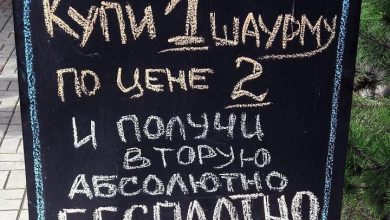 КУПИ 1 ШАУРМУ
ПО ЦЕНЕ 2
И ПОЛУЧИ
ВТОРУЮ
АБСОЛЮТНО
БЕСПЛАТНО